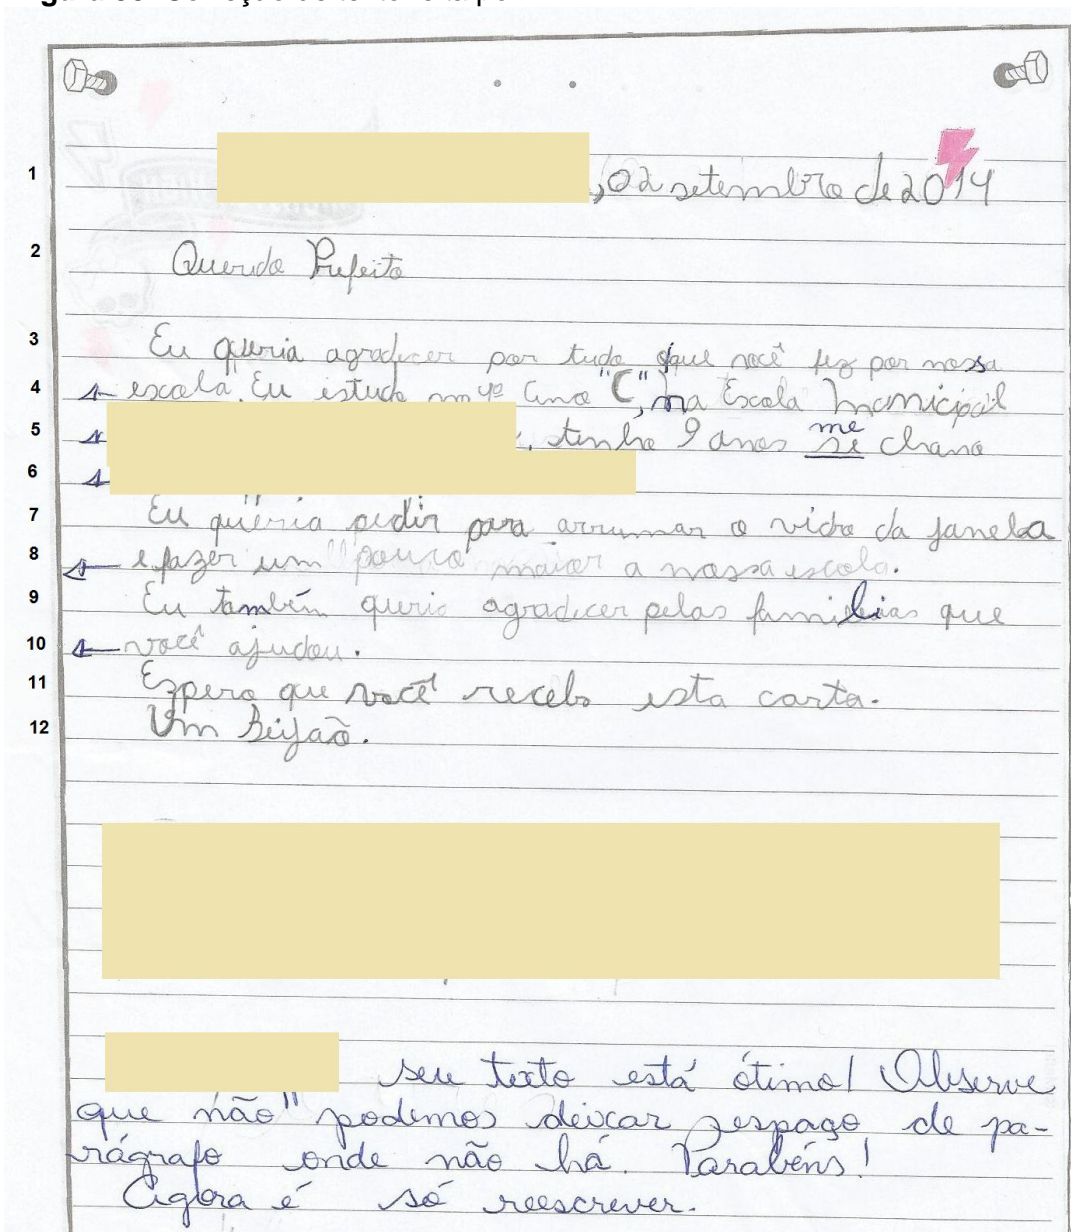 1 , 02 setembro de 2014
2 Querido Prefeito
3 Eu queria agradecer por tudo que você fez por nossa
4 escola. Eu estudo no 4º Ano "C", na Escola Municipal
5 , tenho 9 anos me se chamo
6
7 Eu queria pedir para arrumar o vidro da janela
8 e fazer um pouco maior a nossa escola.
9 Eu também queria agradecer pelas famílias que
10 você ajudou.
11 Espero que você recebo esta carta.
12 Um Beijão.
seu texto está ótimo! Observe
que não podemos deixar espaço de pa-
rágrafo onde não há. Parabéns!
Agora é só reescrever.